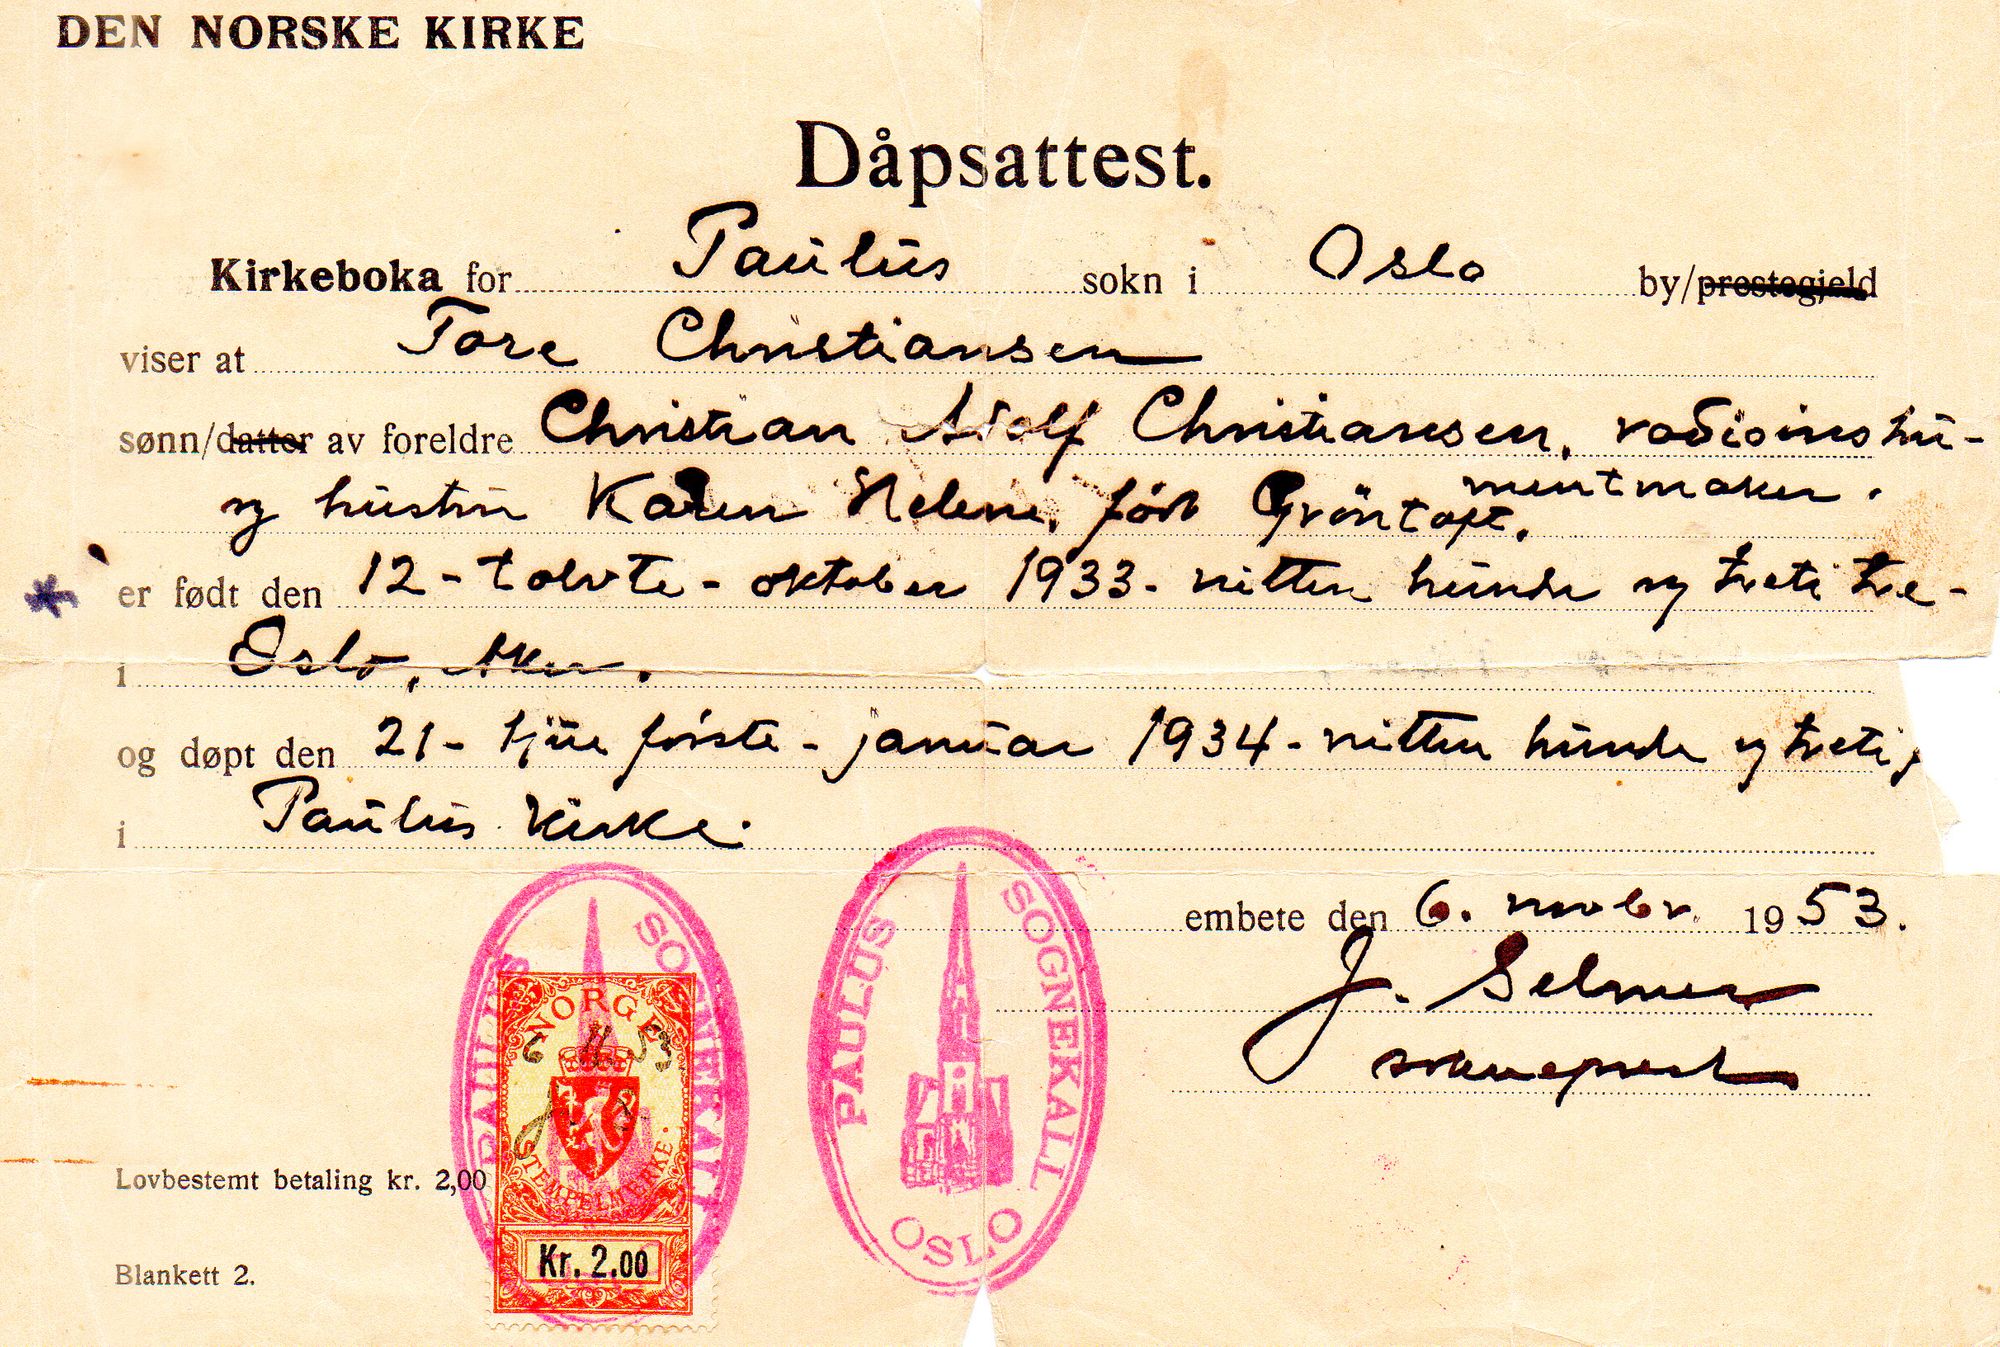 DEN NORSKE KIRKE
Dåpsattest.
Kirkeboka for Paulus sokn i Oslo by/prestegjeld
viser at Tore Christiansen
sønn/datter av foreldre Christian Adolf Christiansen, radioinstru-
mentmaker.
og hustru Karen Helene, født Gröntoft.
er født den 12 - tolvte - oktober 1933 - nitten hundre og tretti tre -
i Oslo, Aker.
og døpt den 21 - tjue første - januar 1934 - nitten hundre og tretti
i Paulus Kirke.
embete den 6. novbr. 1953.
J. Selmer
sokneprest
PAULUS SOGNEKALL
OSLO
PAULUS SOGNEKALL
NORGE
6 11 53
STEMPELMERKE.
Kr. 2.00
Lovbestemt betaling kr. 2,00
Blankett 2.